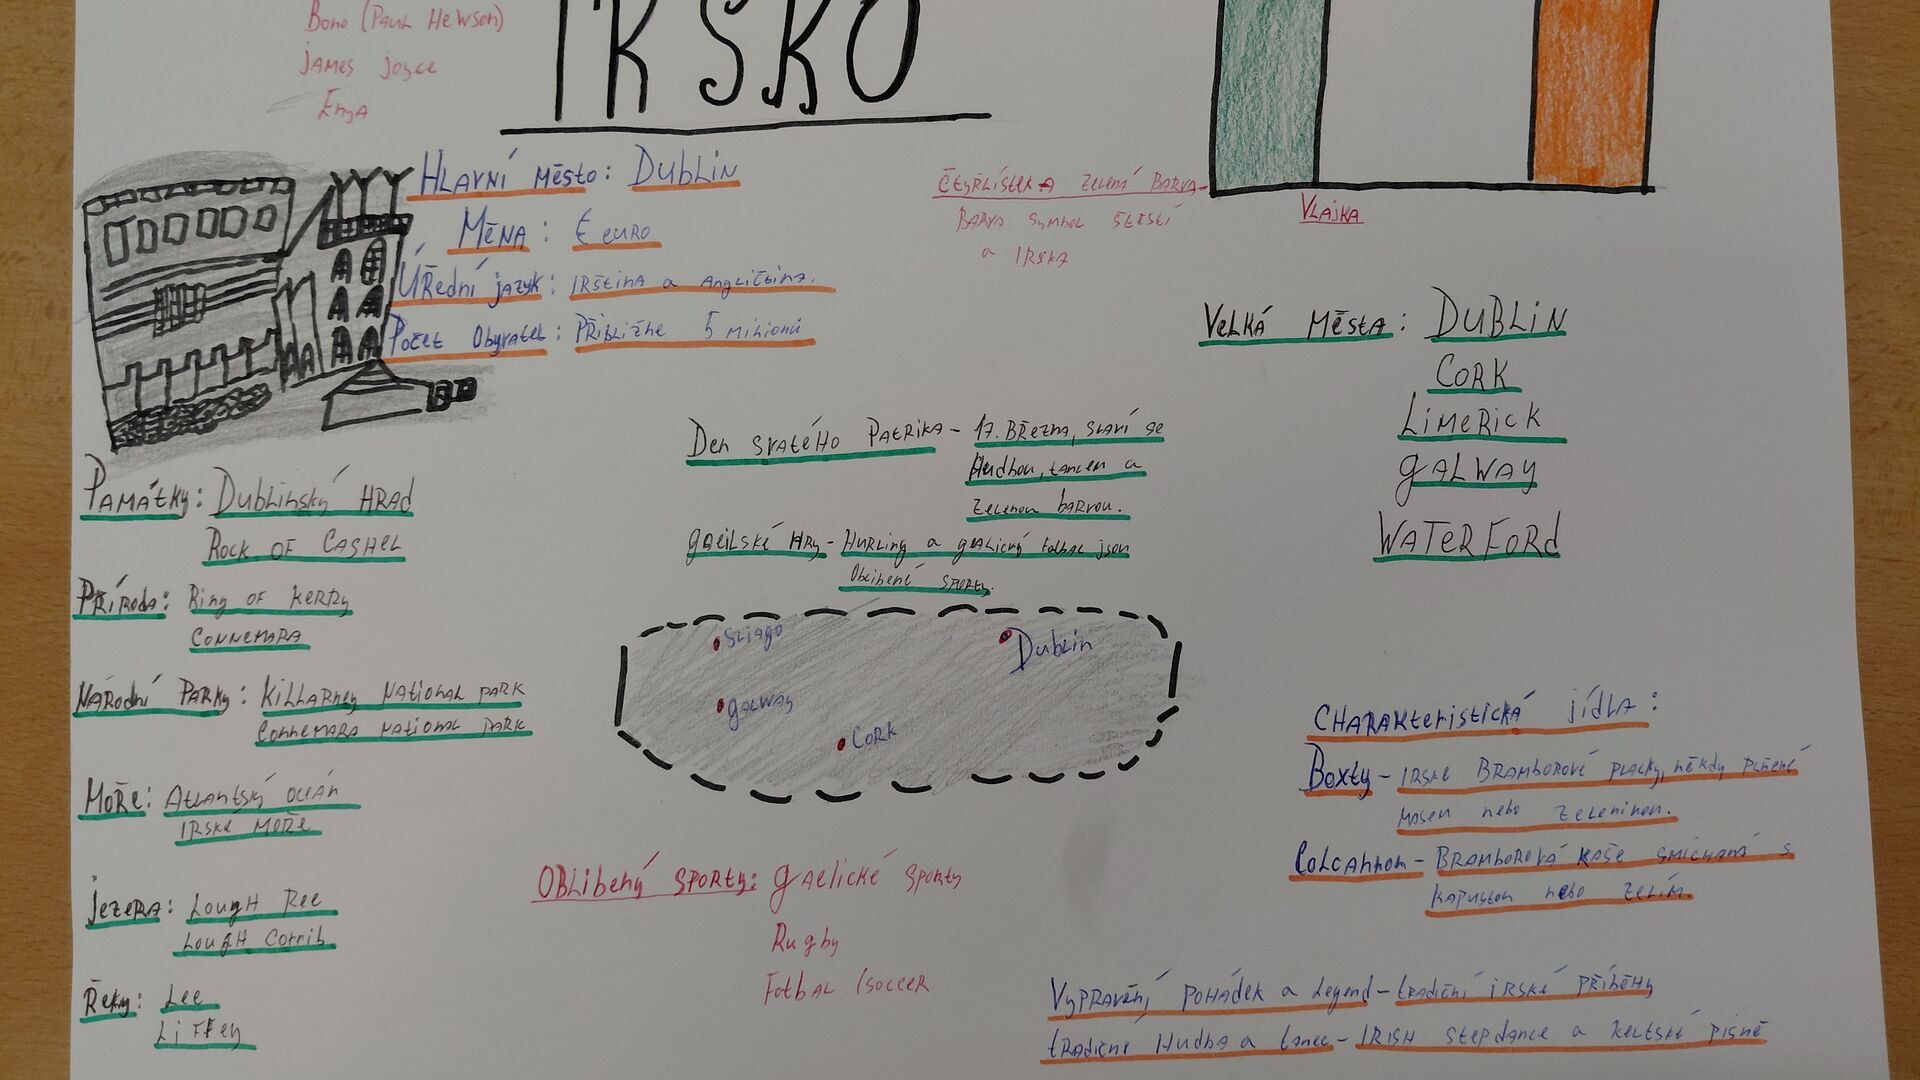 Bono (Paul Hewson)
James Joyce
Enya
IRSKO
Hlavní město: Dublin
Měna: € euro
Úřední jazyk: irština a angličtina.
Počet obyvatel: Přibližně 5 milionů
Čtyřlístek a zelená barva-
Barva symbol štěstí
a Irska
Vlajka
Velká města: Dublin
Cork
Limerick
Galway
Waterford
Den svatého Patrika - 17. Března, slaví se
Hudbou, tancem a
zelenou barvou.
Gaelské hry - Hurling a galický fotbal jsou
Oblíbené sporty.
Památky: Dublinský hrad
Rock of Cashel
Příroda: Ring of Kerry
Connemara
Národní parky: Killarney National park
Connemara National park
Moře: Atlantský oceán
Irské moře
Jezera: Lough Ree
Lough Corrib
Řeky: Lee
Liffey
Sliago
Dublin
Galway
Cork
Oblíbený sporty: Gaelické sporty
Rugby
Fotbal (soccer
Charakteristická jídla:
Boxty - Irské Bramborové placky, někdy plněné
masem nebo zeleninou.
Colcannon - Bramborová kaše smíchaná s
kapustou nebo zelím.
Vyprávění pohádek a legend - tradiční irské příběhy
tradiční Hudba a tanec - Irish stepdance a keltské písně